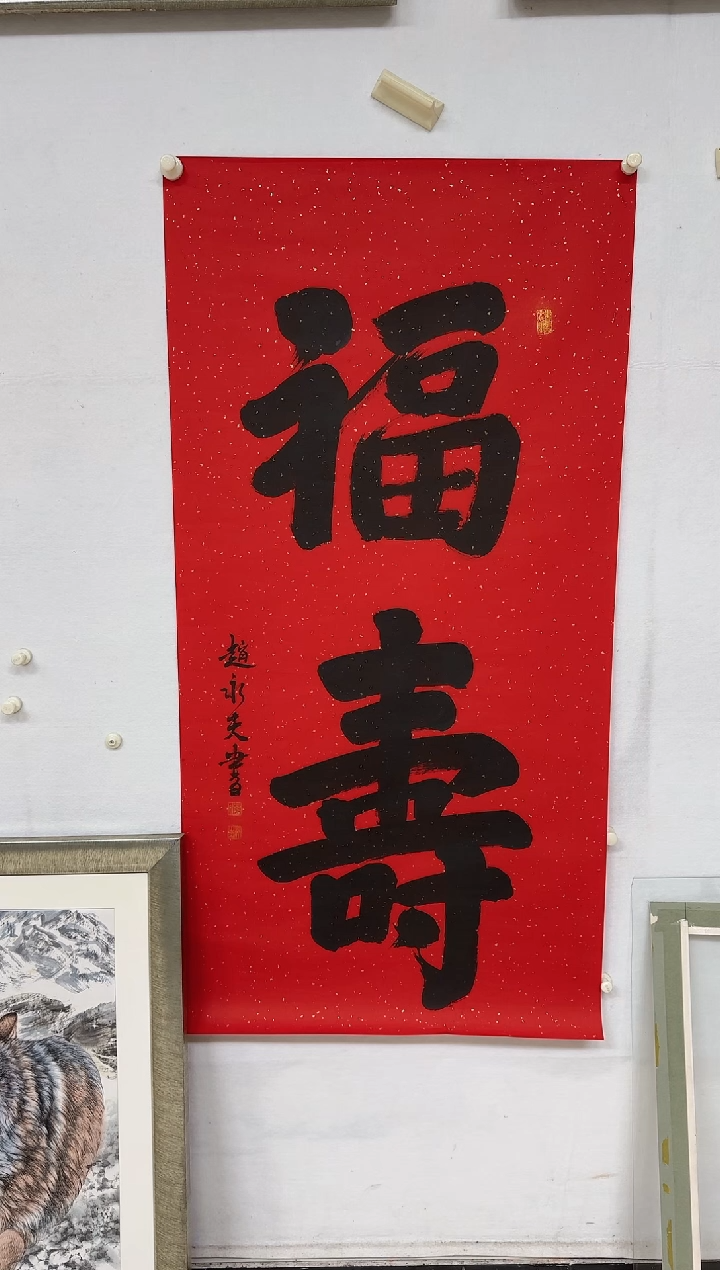 福壽
趙永夫書